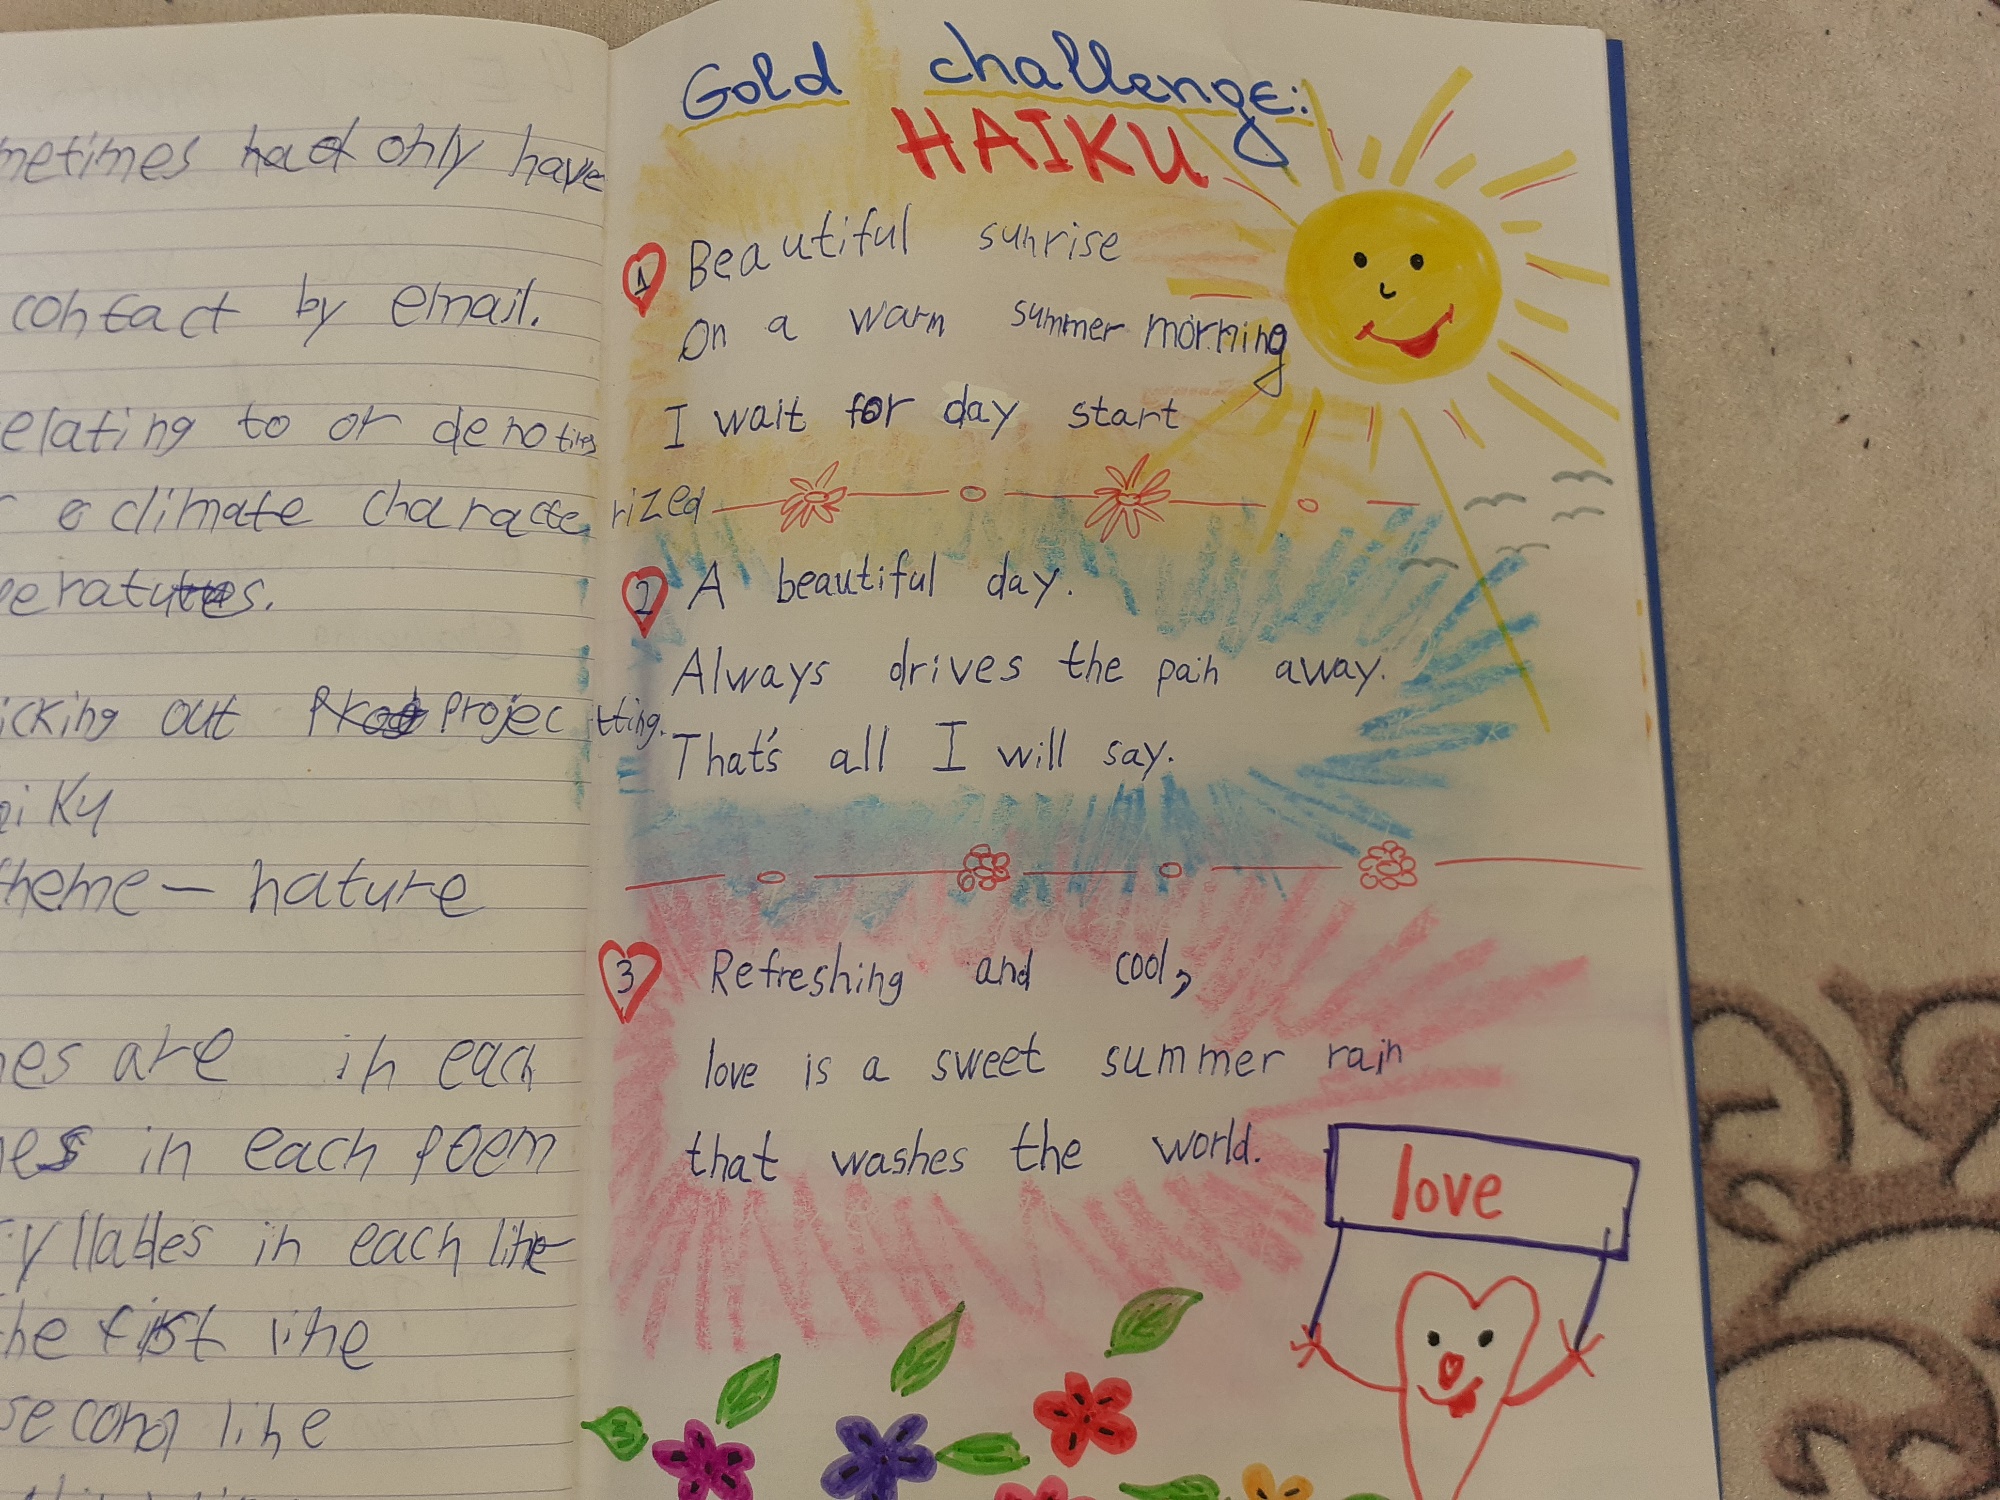 had only have
contact by email.
to or denoting
climate characterized
out projectting.
theme — nature
are in each
in each poem
in each line
first line
second line
Gold challenge:
HAIKU
1 Beautiful sunrise
On a warm summer morning
I wait for day start
2 A beautiful day.
Always drives the pain away.
That's all I will say.
3 Refreshing and cool,
love is a sweet summer rain
that washes the world.
love